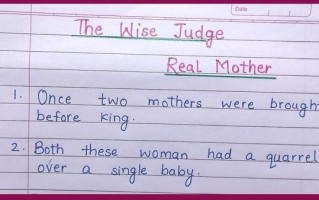 Date
The Wise Judge
Real Mother
1. Once two mothers were brough
before king.
2. Both these woman had a quarrel
over a single baby.